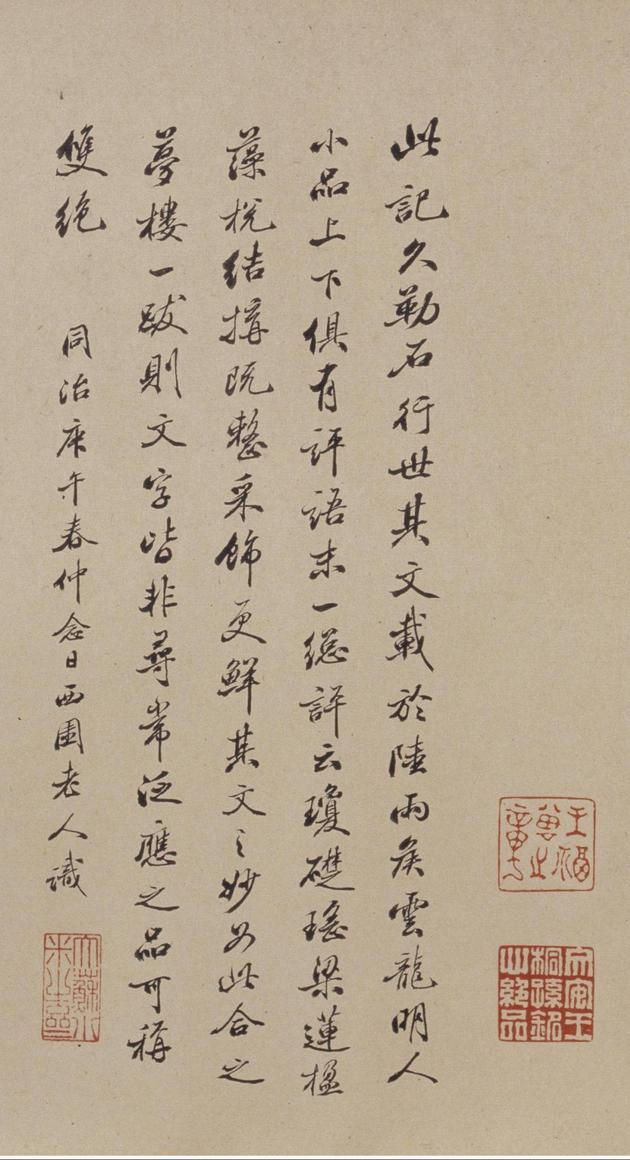 此記久勒石行世其文載於陸雨矦雲龍明人
小品上下俱有評語末一總評云瓊礎瑤梁蓮楹
藻梲結搆既整采飾更鮮其文之妙如此合之
夢樓一跋則文字皆非尋常泛應之品可稱
雙絶
同治庚午春仲念日西圃老人識